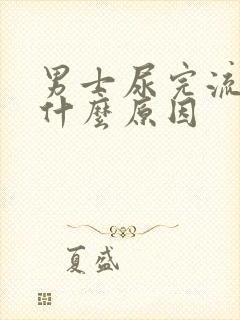 男士尿完流
什麼原因
夏盛